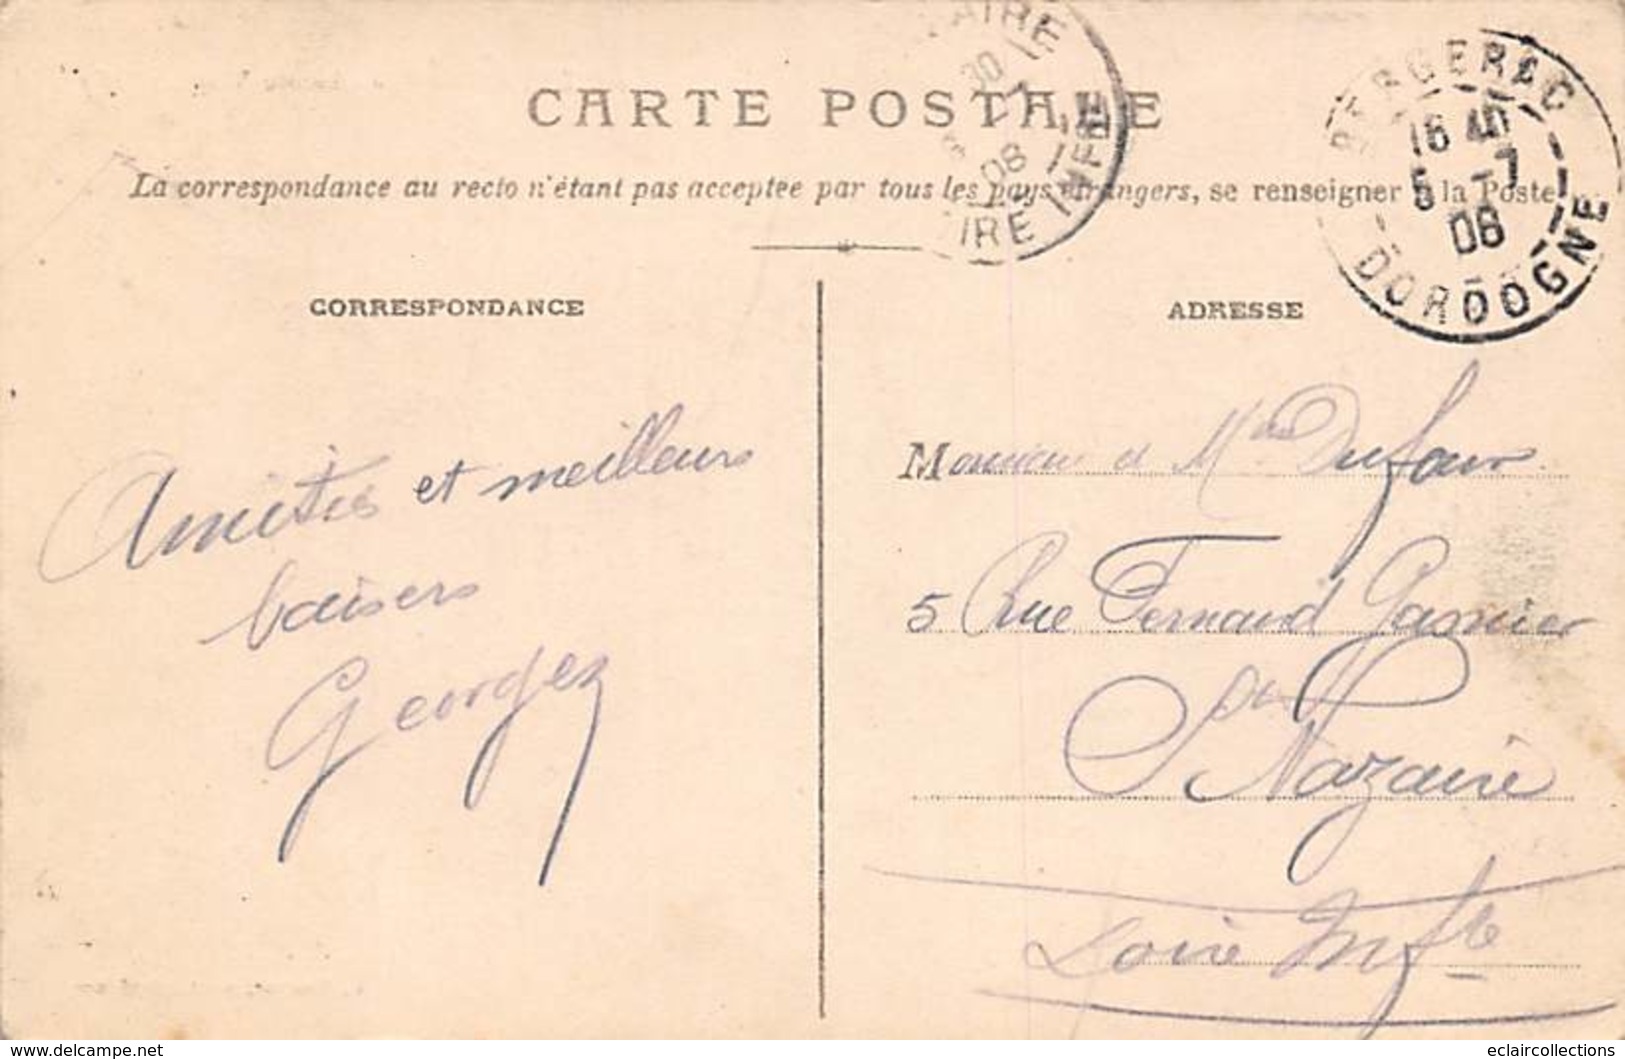 CARTE POSTALE
La correspondance au recto n'étant pas acceptée par tous les pays étrangers, se renseigner à la Poste
CORRESPONDANCE
ADRESSE
BERGERAC
16 40
5 -7
08
DORDOGNE
AIRE
30
08
IRE INFRE
Amitiés et meilleurs
baisers
Georges
Monsieur et Mme Dufour
5 Rue Fernand Gasnier
St
Nazaire
Loire Infre
www.delcampe.net
eclaircollections